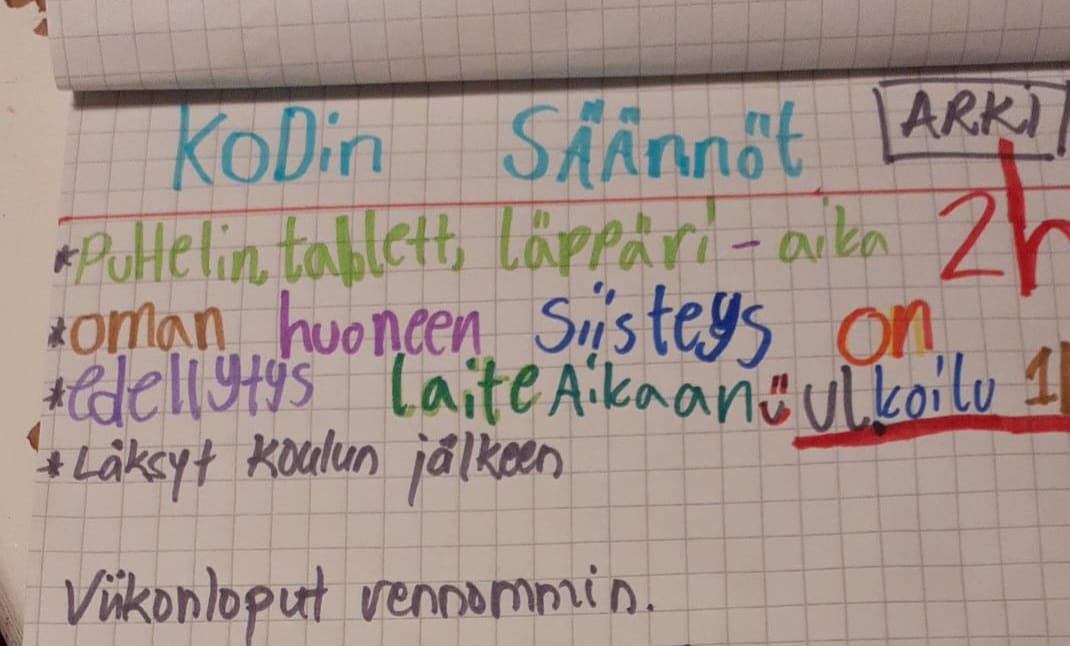 KODin SÄÄnnöt ARKI
*PuHelin, tablett, läppäri-aika 2h
*oman huoneen Siisteys on
*edellytys laiteAikaan ulkoilu 1
*Läksyt koulun jälkeen
Viikonloput rennommin.